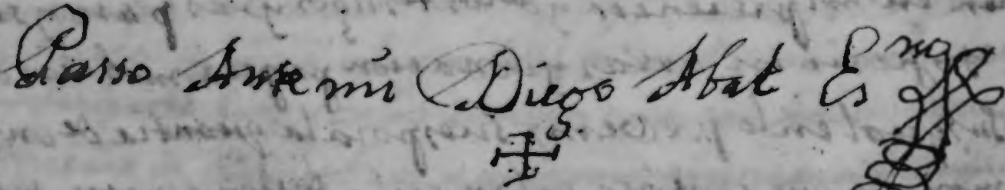 Passo Ante mi Diego Abat Es^no